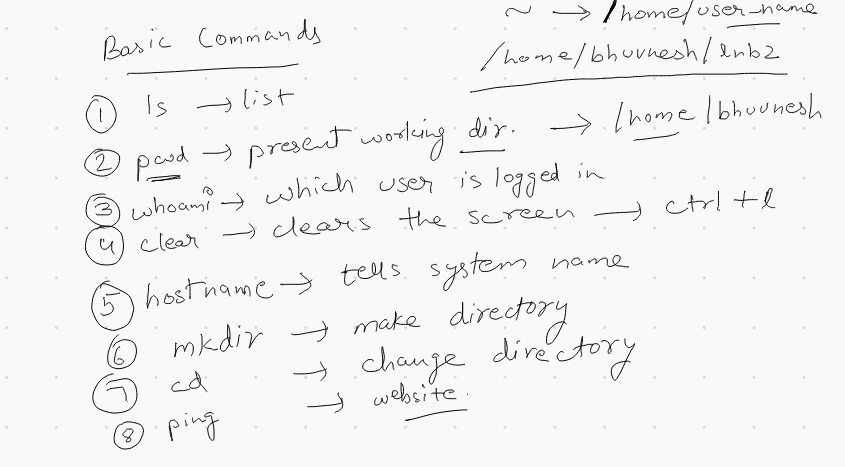 ~ → /home/user_name
Basic Commands
/home/bhuvnesh/lnb2
① ls → list
② pwd → present working dir. → /home/bhuvnesh
③ whoami → which user is logged in
④ clear → clears the screen → ctrl + l
⑤ hostname → tells system name
⑥ mkdir → make directory
⑦ cd → change directory
⑧ ping → website.